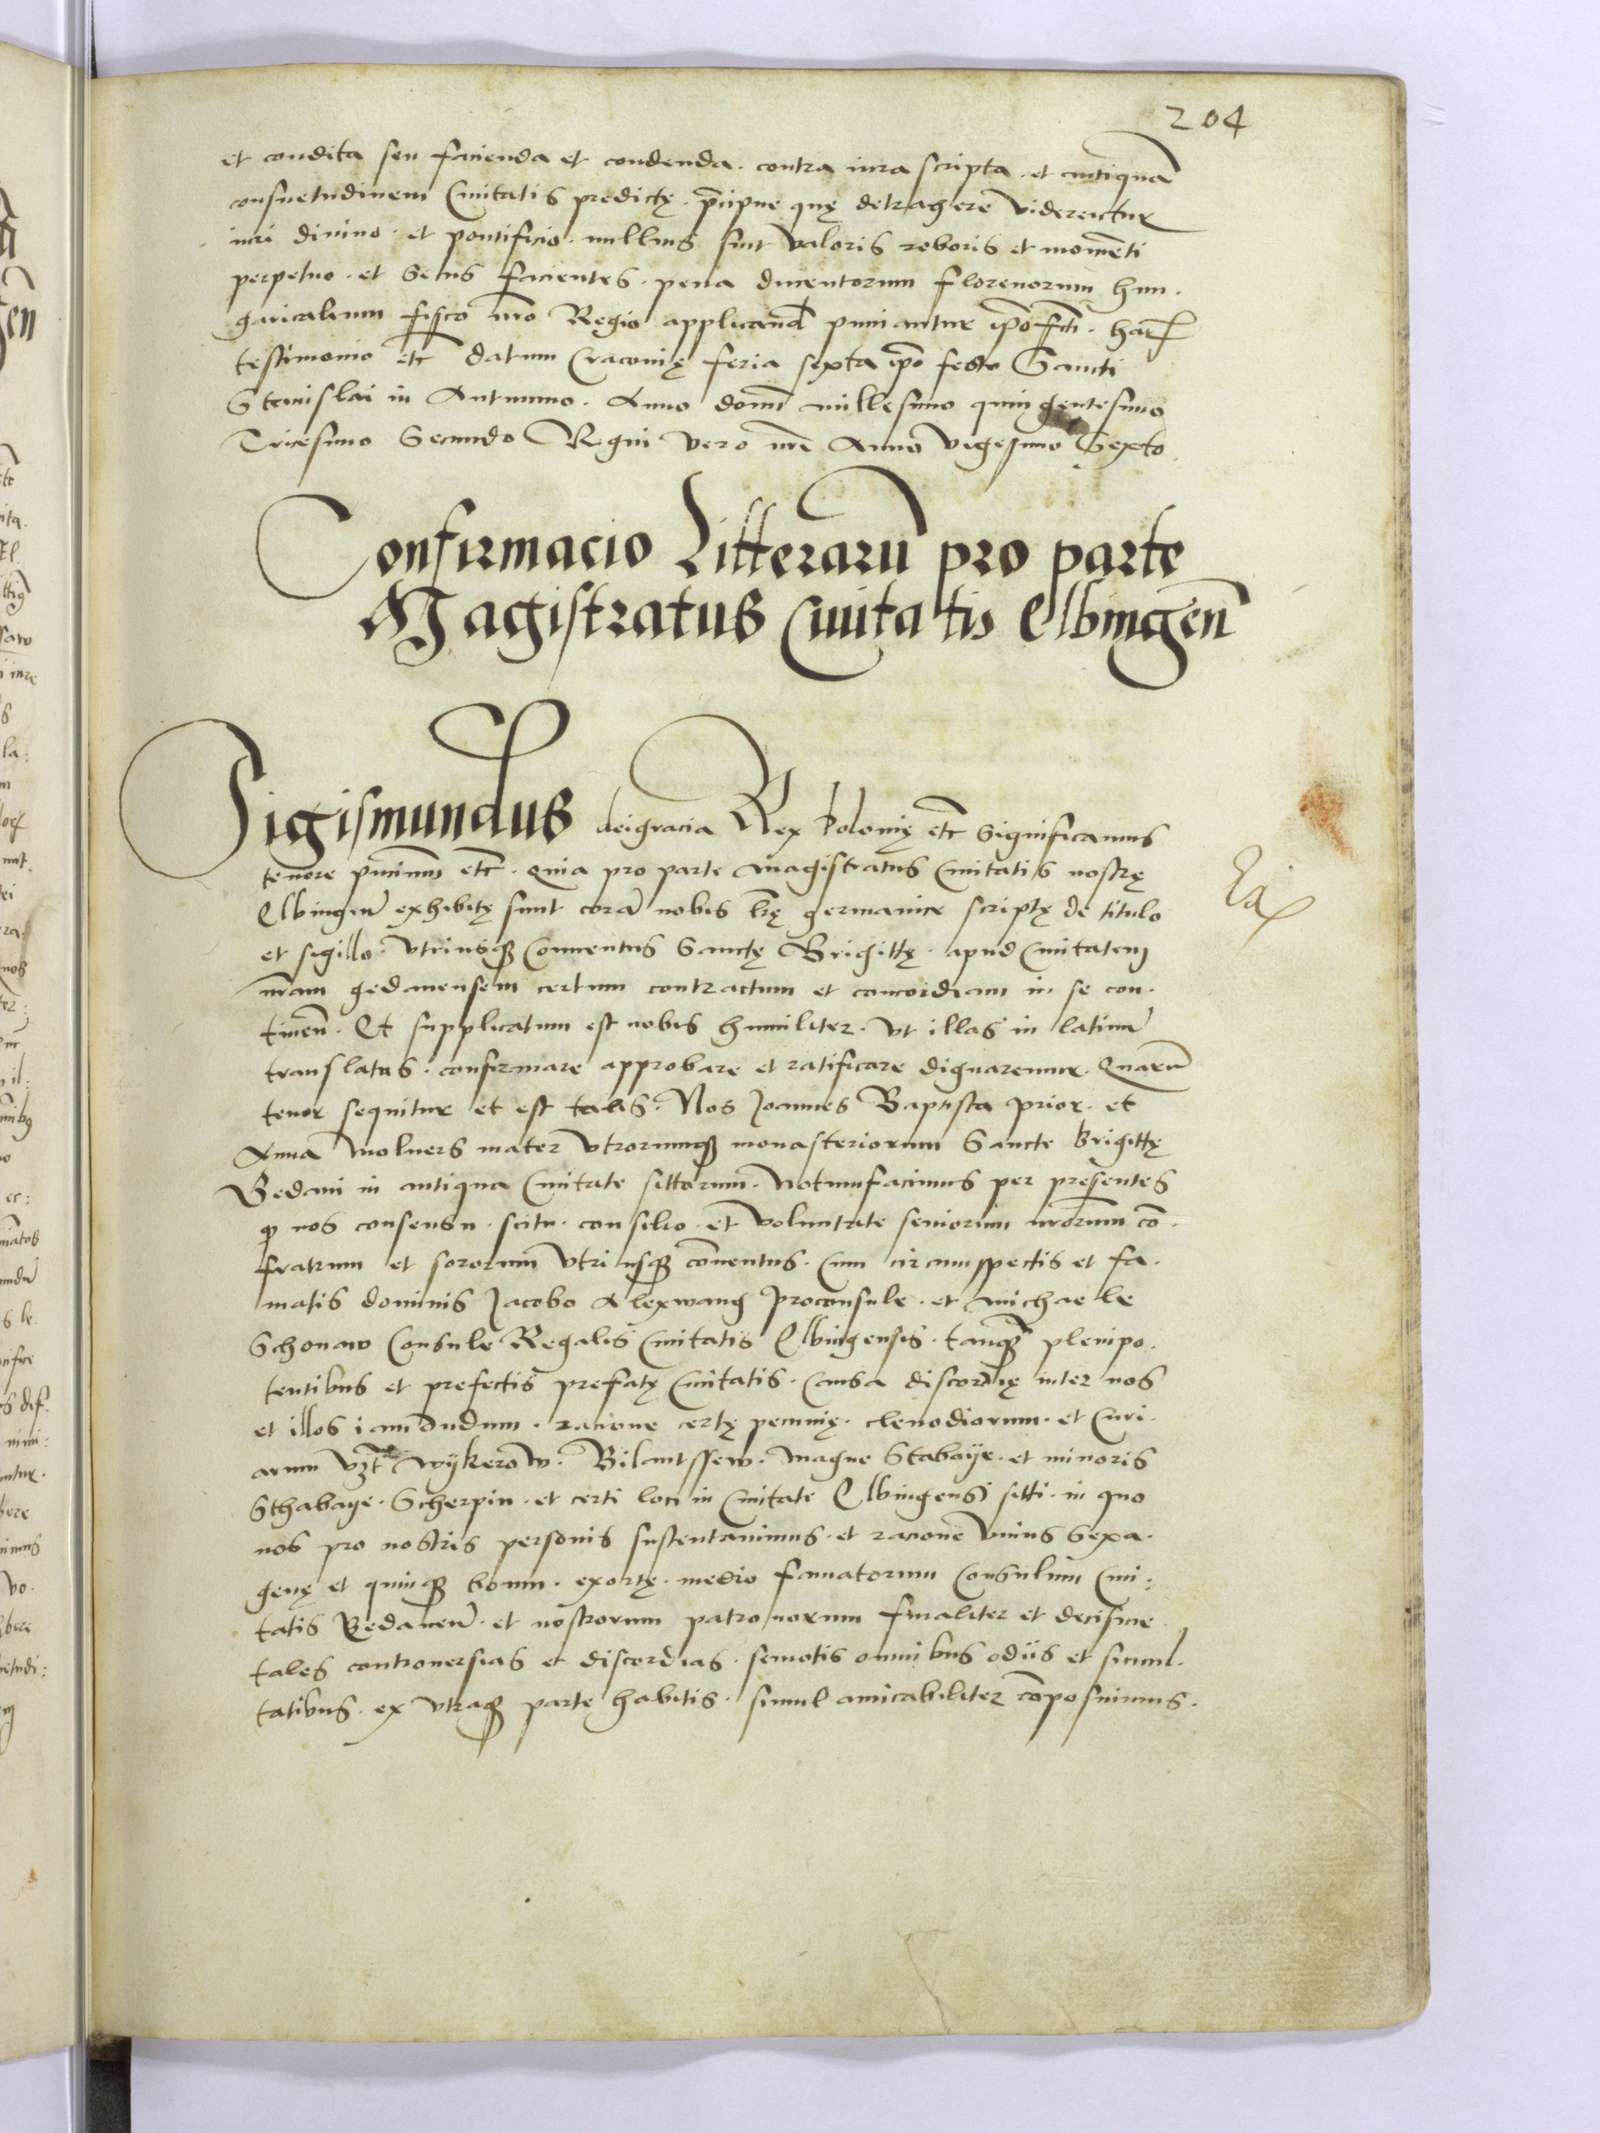 204
et condita seu facienda et condenda. contra iura scripta. et antiquā
consuetudinem Ciuitatis predictę. p̄cipue quę detrahere viderentur
iuri divino. et pontificio. nullius sint valoris roboris et momēti
perpetuo. et Secus facientes. pena ducentorum florenorum hun.
garicalium fisco nr̄o Regio applicand̄ puniantur ip̄o fct̄i. har̄
testimonio etc̄ datum Cracovię feria sexta ip̄o festo Sancti
Stanislai in Autumno. Anno domī millesimo quingentesimo
Tricesimo Secundo Regni vero nr̄i Anno vigesimo Sexto.
Confirmacio Litterarū pro parte
Magistratus Ciuitatis Elbingen̄
Sigismundus dei gracia Rex Polonię etc̄ Significamus
tenore p̄ncium etc̄. Quia pro parte magistratus Ciuitatis nostrę
Elbingen̄ exhibitę sunt corā nobis lr̄ę germanice scriptę de titulo
et sigillo. vtriusq̨ Conuentus Sanctę Brigittę. apud Ciuitatem
nr̄am gedanensem certum contractum et concordiam in se con.
tinen̄. Et supplicatum est nobis humiliter. vt illas in latinū
translatas. confirmare approbare et ratificare dignaremur. Quarū
tenor sequitur et est talis. Nos Joannes Baptista prior. et
Anna woluers mater vtrorumq̨ monasteriorum Sancte Brigittę
Gedani in antiqua Ciuitate sittorum. Notumfacimus per presentes
q̨ nos consensu. scitu. consilio. et voluntate seniorum nr̄orum cō.
fratrum et sororum vtriusq̨ cōuentus. Cum circumspectis et fa.
matis dominis Jacobo Alexwang Proconsule. et Michaele
Schonaw Consule Regalis Ciuitatis Elbingensis. tanq̨ plenipo.
tentibus et prefectis prefatę Ciuitatis. Causa discordię inter nos
et illos iam dudum. racione certę pecunię. clenodiorum. et Curi.
arum vz̄t wykerow. Bilantssew. magne Stabaye. et minoris
Sthabaye. Scherpin. et certi loci in Ciuitate Elbingensi sitti. in quo
nos pro nostris personis sustentauimus. et racione vnius Sexa.
genę et quinq̨ boum. exortę. medio famatorum Consulum Ciui:
tatis Gedanen̄. et nostrorum patronorum finaliter et decisiue.
tales controuersias et discordias. semotis omnibus odiis et simul.
tatibus. ex vtraq̨ parte habitis. simul amicabiliter cōposuimus.